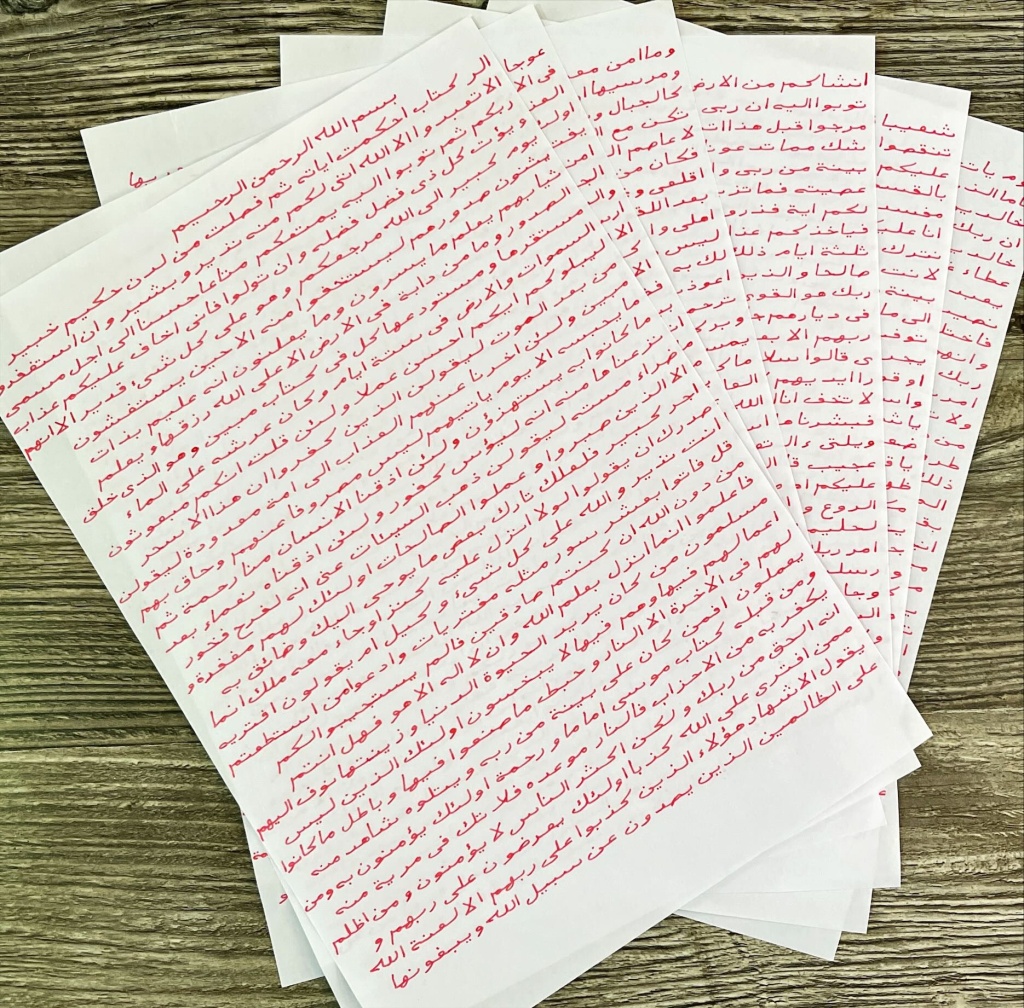 بسم الله الرحمن الرحيم
الر كتاب احكمت اياته ثم فصلت من لدن حكيم خبير
الا تعبدوا الا الله اننى لكم منه نذير و بشير و ان استغفروا
ربكم ثم توبوا اليه يمتعكم متاعا حسنا الى اجل مسمى
و يؤت كل ذى فضل فضله و ان تولوا فانى اخاف عليكم عذاب
يوم كبير الى الله مرجعكم و هو على كل شئ قدير الا انهم
يثنون صدورهم ليستخفوا منه الا حين يستغشون
ثيابهم يعلم ما يسرون و ما يعلنون انه عليم بذات
الصدور و ما من دابة فى الارض الا على الله رزقها و يعلم
مستقرها و مستودعها كل فى كتاب مبين و هو الذى خلق
السموات والارض فى ستة ايام و كان عرشه على الماء
ليبلوكم ايكم احسن عملا و لئن قلت انكم مبعوثون
من بعد الموت ليقولن الذين كفروا ان هذا الا سحر
مبين و لئن اخرنا عنهم العذاب الى امة معدودة ليقولن
ما يحبسه الا يوم ياتيهم ليس مصروفا عنهم و حاق بهم
ما كانوا به يستهزؤن و لئن اذقنا الانسان منا رحمة ثم
نزعناها منه انه ليؤس كفور و لئن اذقناه نعماء بعد
ضراء مسته ليقولن ذهب السيئات عنى انه لفرح فخور
الا الذين صبروا و عملوا الصالحات اولئك لهم مغفرة و
اجر كبير فلعلك تارك بعض ما يوحى اليك و ضائق به
صدرك ان يقولوا لولا انزل عليه كنز او جاء معه ملك انما
انت نذير و الله على كل شئ وكيل ام يقولون افتريه
قل فاتوا بعشر سور مثله مفتريات وادعوا من استطعتم
من دون الله ان كنتم صادقين فالم يستجيبوا لكم
فاعلموا انما انزل بعلم الله و ان لا اله الا هو فهل انتم
مسلمون من كان يريد الحيوة الدنيا و زينتها نوف اليهم
اعمالهم فيها و هم فيها لا يبخسون اولئك الذين ليس
لهم فى الاخرة الا النار و حبط ما صنعوا فيها و باطل ما كانوا
يعملون افمن كان على بينة من ربه و يتلوه شاهد منه
و من قبله كتاب موسى اماما و رحمة اولئك يؤمنون به و من
يكفر به من الاحزاب فالنار موعده فلا تك فى مرية منه
انه الحق من ربك و لكن اكثر الناس لا يؤمنون و من اظلم
ممن افترى على الله كذبا اولئك يعرضون على ربهم و
يقول الاشهاد هؤلاء الذين كذبوا على ربهم الا لعنة الله
على الظالمين الذين يصدون عن سبيل الله و يبغونها
عوجا
وما امن مع
و مرسيها
كالجبال و
تكن مع ال
لا عاصم ال
فكان من ال
اقلعى و
بعد اللق
انشاكم من الارض
توبوا اليه ان ربى
مرجوا قبل هذا ات
شك مما تدعونا
بينة من ربى وا
عصيته فما تز
لكم اية فذرو
فياخذكم عذا
ثلثة ايام ذلك
صالحا و الذين
ربك هو القوى
فى ديارهم ج
ربهم الا بع
ى قالوا سلا
را ايديهم
لا تخف انا ا
فبشرناها
ويلتى ء
عجيب ق
عليكم ا
الروع و
لحليم
امر ربك
شعيبا
تنقصوا
عليكم
بالقسط
مفسد
انا علي
نترك
لانت
بينة
الى ما
توف
يجر
او قو
واس
يا ش
ضع
خالدين
ان ربك
خالد
عطاء
يعبد
نصيب
فاختل
و انهم
ربك
امر
و لا ت
من
طر
ذلك